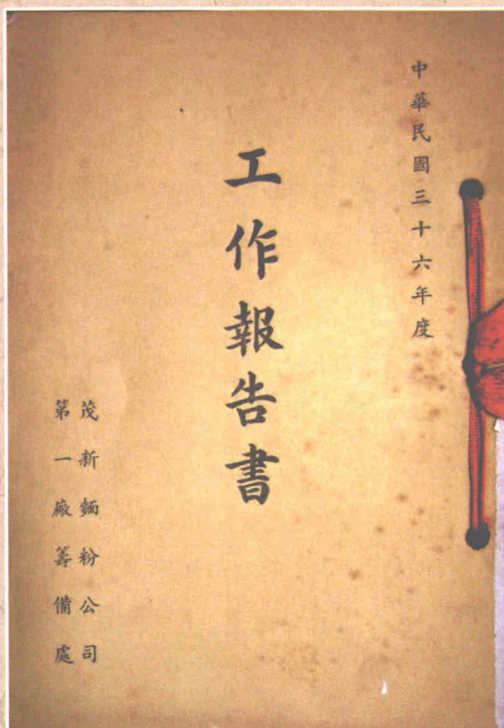 中華民國三十六年度
工作報告書
茂新麵粉公司
第一廠籌備處